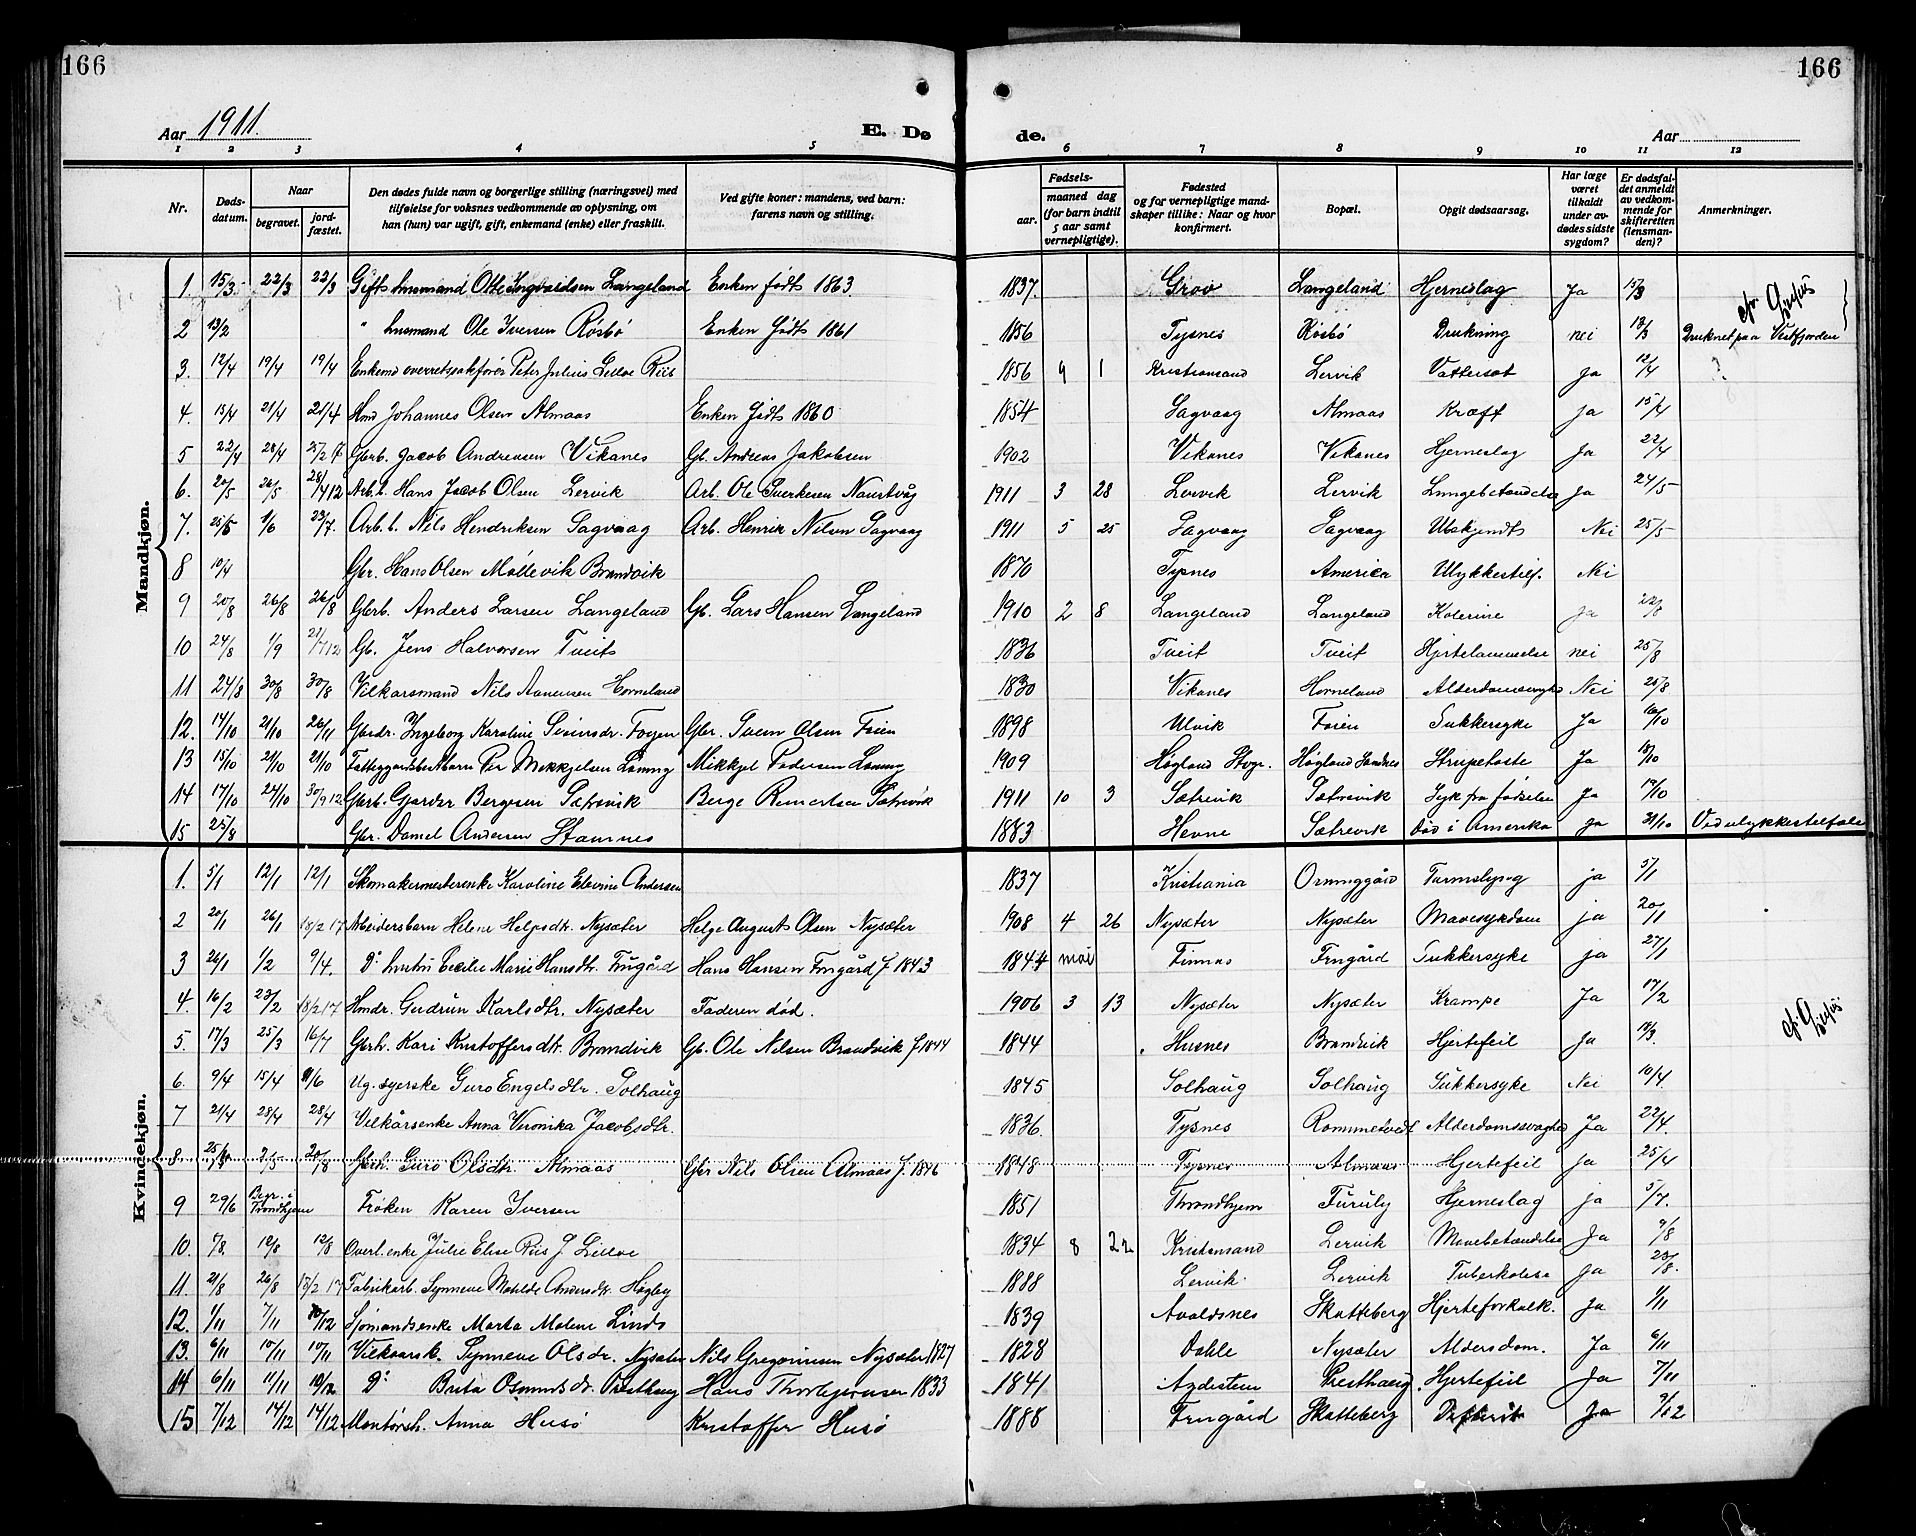 166
166
Aar 1911.
E. Dø
de.
Aar
1 2 3 4 5 6 7 8 9 10 11 12
Nr.
Døds-
datum.
Naar
begravet.
jord-
fæstet.
Den dødes fulde navn og borgerlige stilling (næringsvei) med
tilføielse for voksnes vedkommende av oplysning, om
han (hun) var ugift, gift, enkemand (enke) eller fraskilt.
Ved gifte koner: mandens, ved barn:
farens navn og stilling.
Fødsels-
aar.
maaned dag
(for barn indtil
5 aar samt
vernepligtige).
Fødested
og for vernepligtige mand-
skaper tillike: Naar og hvor
konfirmert.
Bopæl.
Opgit dødsaarsag.
Har læge
været
tilkaldt
under av-
dødes sidste
sygdom?
Er dødsfal-
det anmeldt
av vedkom-
mende for
skifteretten
(lensman-
den)?
Anmerkninger.
Mandkjøn.
1. 15/3. 22/3 22/3 Gifts husmand Otte Ingvaldsen Langeland Enken født 1863. 1837. Grov Langeland Hjerneslag Ja 15/3
2 13/2 " husmand Ole Iversen Røsbø Enken født 1861 1856 Tysnes Røsbø Drukning nei 13/3 Druknet paa Vestfjorden
3. 12/4 19/4 19/4 Enkemd overretssakfører Peter Julius Lilloe Riis 1856 9 1 Kristiansand Lervik Vattersot ja 12/4
4. 15/4 21/4 21/4 Hmd Johannes Olsen Almaas Enken født 1860 1854 Sagvaag Almaas Kræft ja 15/4
5 22/4 28/4 Gbrb. Jacob Andreasen Vikanes Gb. Andreas Jakobsen 1902 Vikanes Vikanes Hjerneslag Ja 22/4
6. 20/5 26/5 28/4 12 Arb. b. Hans Jacob Olsen Lervik Arb. Ole Sverkesen Naustvåg 1911 3 28 Lervik Lervik Lungebetændelse Ja 24/5
7. 25/5 1/6 23/7. Arb. b. Nils Hendriksen Sagvaag Arb. Henrik Nilsen Sagvaag 1911 5 25 Sagvaag Sagvaag Ubekjendt Nei 25/5
8 10/4 Gbr. Hans Olsen Møllevik Brandvik 1870 Tysnes America Ulykkestilf. Nei
9 20/8 26/8 26/8 Gbrb. Anders Larsen Langeland Gb. Lars Hansen Langeland 1910 2 8 Langeland Langeland Kolerine Ja 22/8
10 24/8 1/9 21/7 12 Gb. Jens Halvorsen Tveit 1836 Tveit Tveit Hjertelammelse nei 25/8
11 24/8 30/8 30/8 Vilkårsmand Nils Aanensen Horneland 1830 Vikanes Horneland Alderdomssvaghed Nei 25/8
12. 14/10 21/10 26/11 Gbrdr. Ingeborg Karoline Sveinsdr. Føyen Gbr. Svein Olsen Føien 1898 Ulvik Føien Sukkersyke Ja 16/10
13 15/10 21/10 21/10 Fattiggårdsb. Per Mikkjelsen Løning Mikkjel Pedersen Løning 1909 Høgland Høgland Sandnes Strupehoste Ja 18/10
14 17/10 24/10 30/9 12 Gbrb. Gjerder Bergesen Sætrevik Berge Remertsen Sætrevik 1911 10 3 Sætrevik Sætrevik Syk fra fødselen Ja 19/10
15 25/8 Gbr. Daniel Andersen Stamnes 1883 Hevne Sætrevik Død i Amerika ja 31/10 Ved ulykkestilfælde
Kvindekjøn.
1. 5/1 12/1 12/1 Skomakermesterenke Karoline Elverine Andersen 1837 Kristiania Ornunggård Tarmslyng ja 5/1
2 20/1 26/1 18/2 17 Arbeidersbarn Helene Helgesdtr. Nysæter Helge August Olsen Nysæter 1908 4 26 Nysæter Nysæter Mavesykdom ja 20/1
3 26/1 1/2 9/4. Do hustru Cecilie Marie Hansdtr. Frugård Hans Hansen Frugård f. 1843 1844 mai Finnas Frugård Sukkersyke ja 27/1
4. 16/2 23/2 18/2 17 Hmdr. Gudrun Karlsdtr. Nysæter Faderen død. 1906 3 13 Nysæter Nysæter Krampe Ja 17/2
5. 17/3 25/3 16/7 Gbrh. Kari Kristoffersdtr. Brandvik Gb. Ole Nilsen Brandvik f. 1844 1844 Husnes Brandvik Hjertefeil Ja 18/3.
6. 9/4 15/4 11/6 Ug. syerske Guro Engelsdtr. Solhaug 1845 Solhaug Solhaug Sukkersyke Nei 10/4.
7 21/4 28/4 28/4 Vilkårsenke Anna Veronika Jacobsdtr. 1836. Tysnes Rommetvedt Alderdomssvaghed Ja 22/4.
8. 25/4 2/5 20/8 Gbrh. Guro Olsdtr. Almaas Gbr Nils Olsen Almaas f. 1846 1848 Tysnes Almaas Hjertefeil Ja 25/4
9 29/6 Begr. i Trondhjem Frøken Karen Iversen 1851 Throndhjem Furuly Hjerneslag ja 5/7.
10. 7/8. 12/8 12/8 Overl. enke Julie Elise Riis f. Lilloe 1834 8 22 Kristiansand Lervik Mavebetændelse Ja 9/8
11. 21/8 26/8 15/2 17 Fabrikarb. Synneve Matilde Andersdtr. Høgby 1888 Lervik. Lervik Tuberkolose Ja 23/8.
12. 1/11 7/11 10/12 Sjømandsenke Marta Malene Linds 1839 Avaldsnes Skatteberg Hjerteforkalk. Ja 1/11
13. 6/11 10/11 10/11 Vilkaarsk. Synneve Olsdr. Nysæter Nils Gregoriusen Nysæter 1827 1828 Dahle Nysæter Aldersdom. Ja 6/11
14 6/11 11/11 10/12 Do Brita Osmundsdr. Presthaug Hans Thorbjørnsen 1833 1841 Aadistein Presthaug Hjertefeil Ja 7/11
15 7/12 14/12 14/12 Montørsh. Anna Husø Kristoffer Husø 1888 Frugård Skatteberg Difterit Ja 9/12